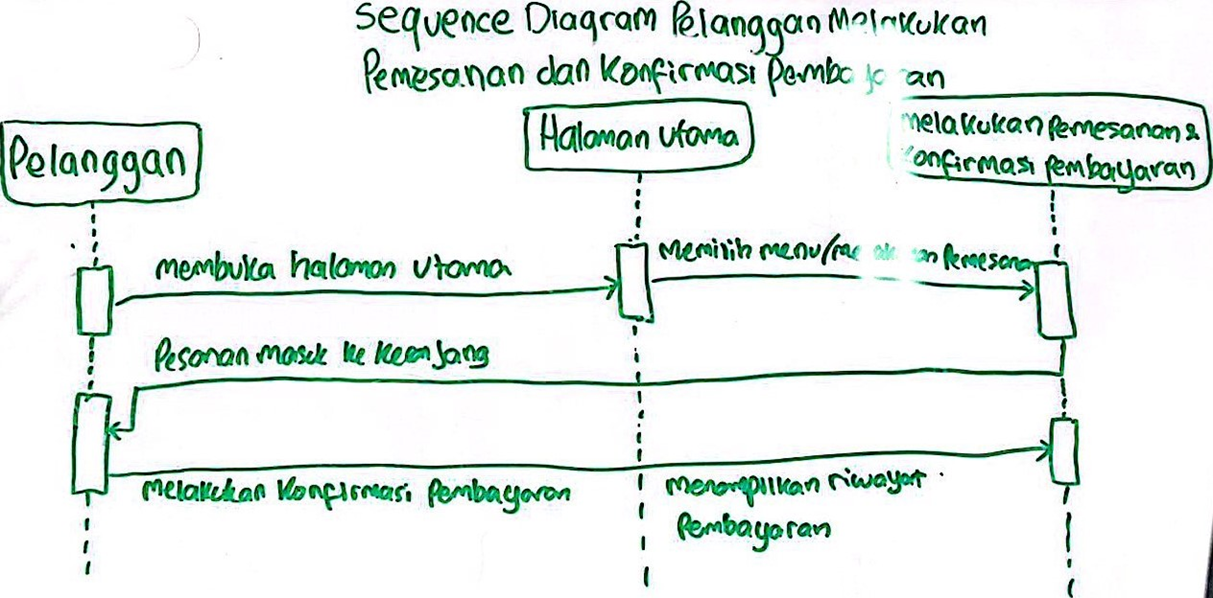 Sequence Diagram Pelanggan Melakukan
Pemesanan dan Konfirmasi Pembayaran
Pelanggan
Halaman Utama
Melakukan Pemesanan &
Konfirmasi Pembayaran
membuka halaman utama
Memilih menu/ Pemesanan
Pesanan masuk ke keranjang
Melakukan Konfirmasi Pembayaran
Menampilkan riwayat
Pembayaran